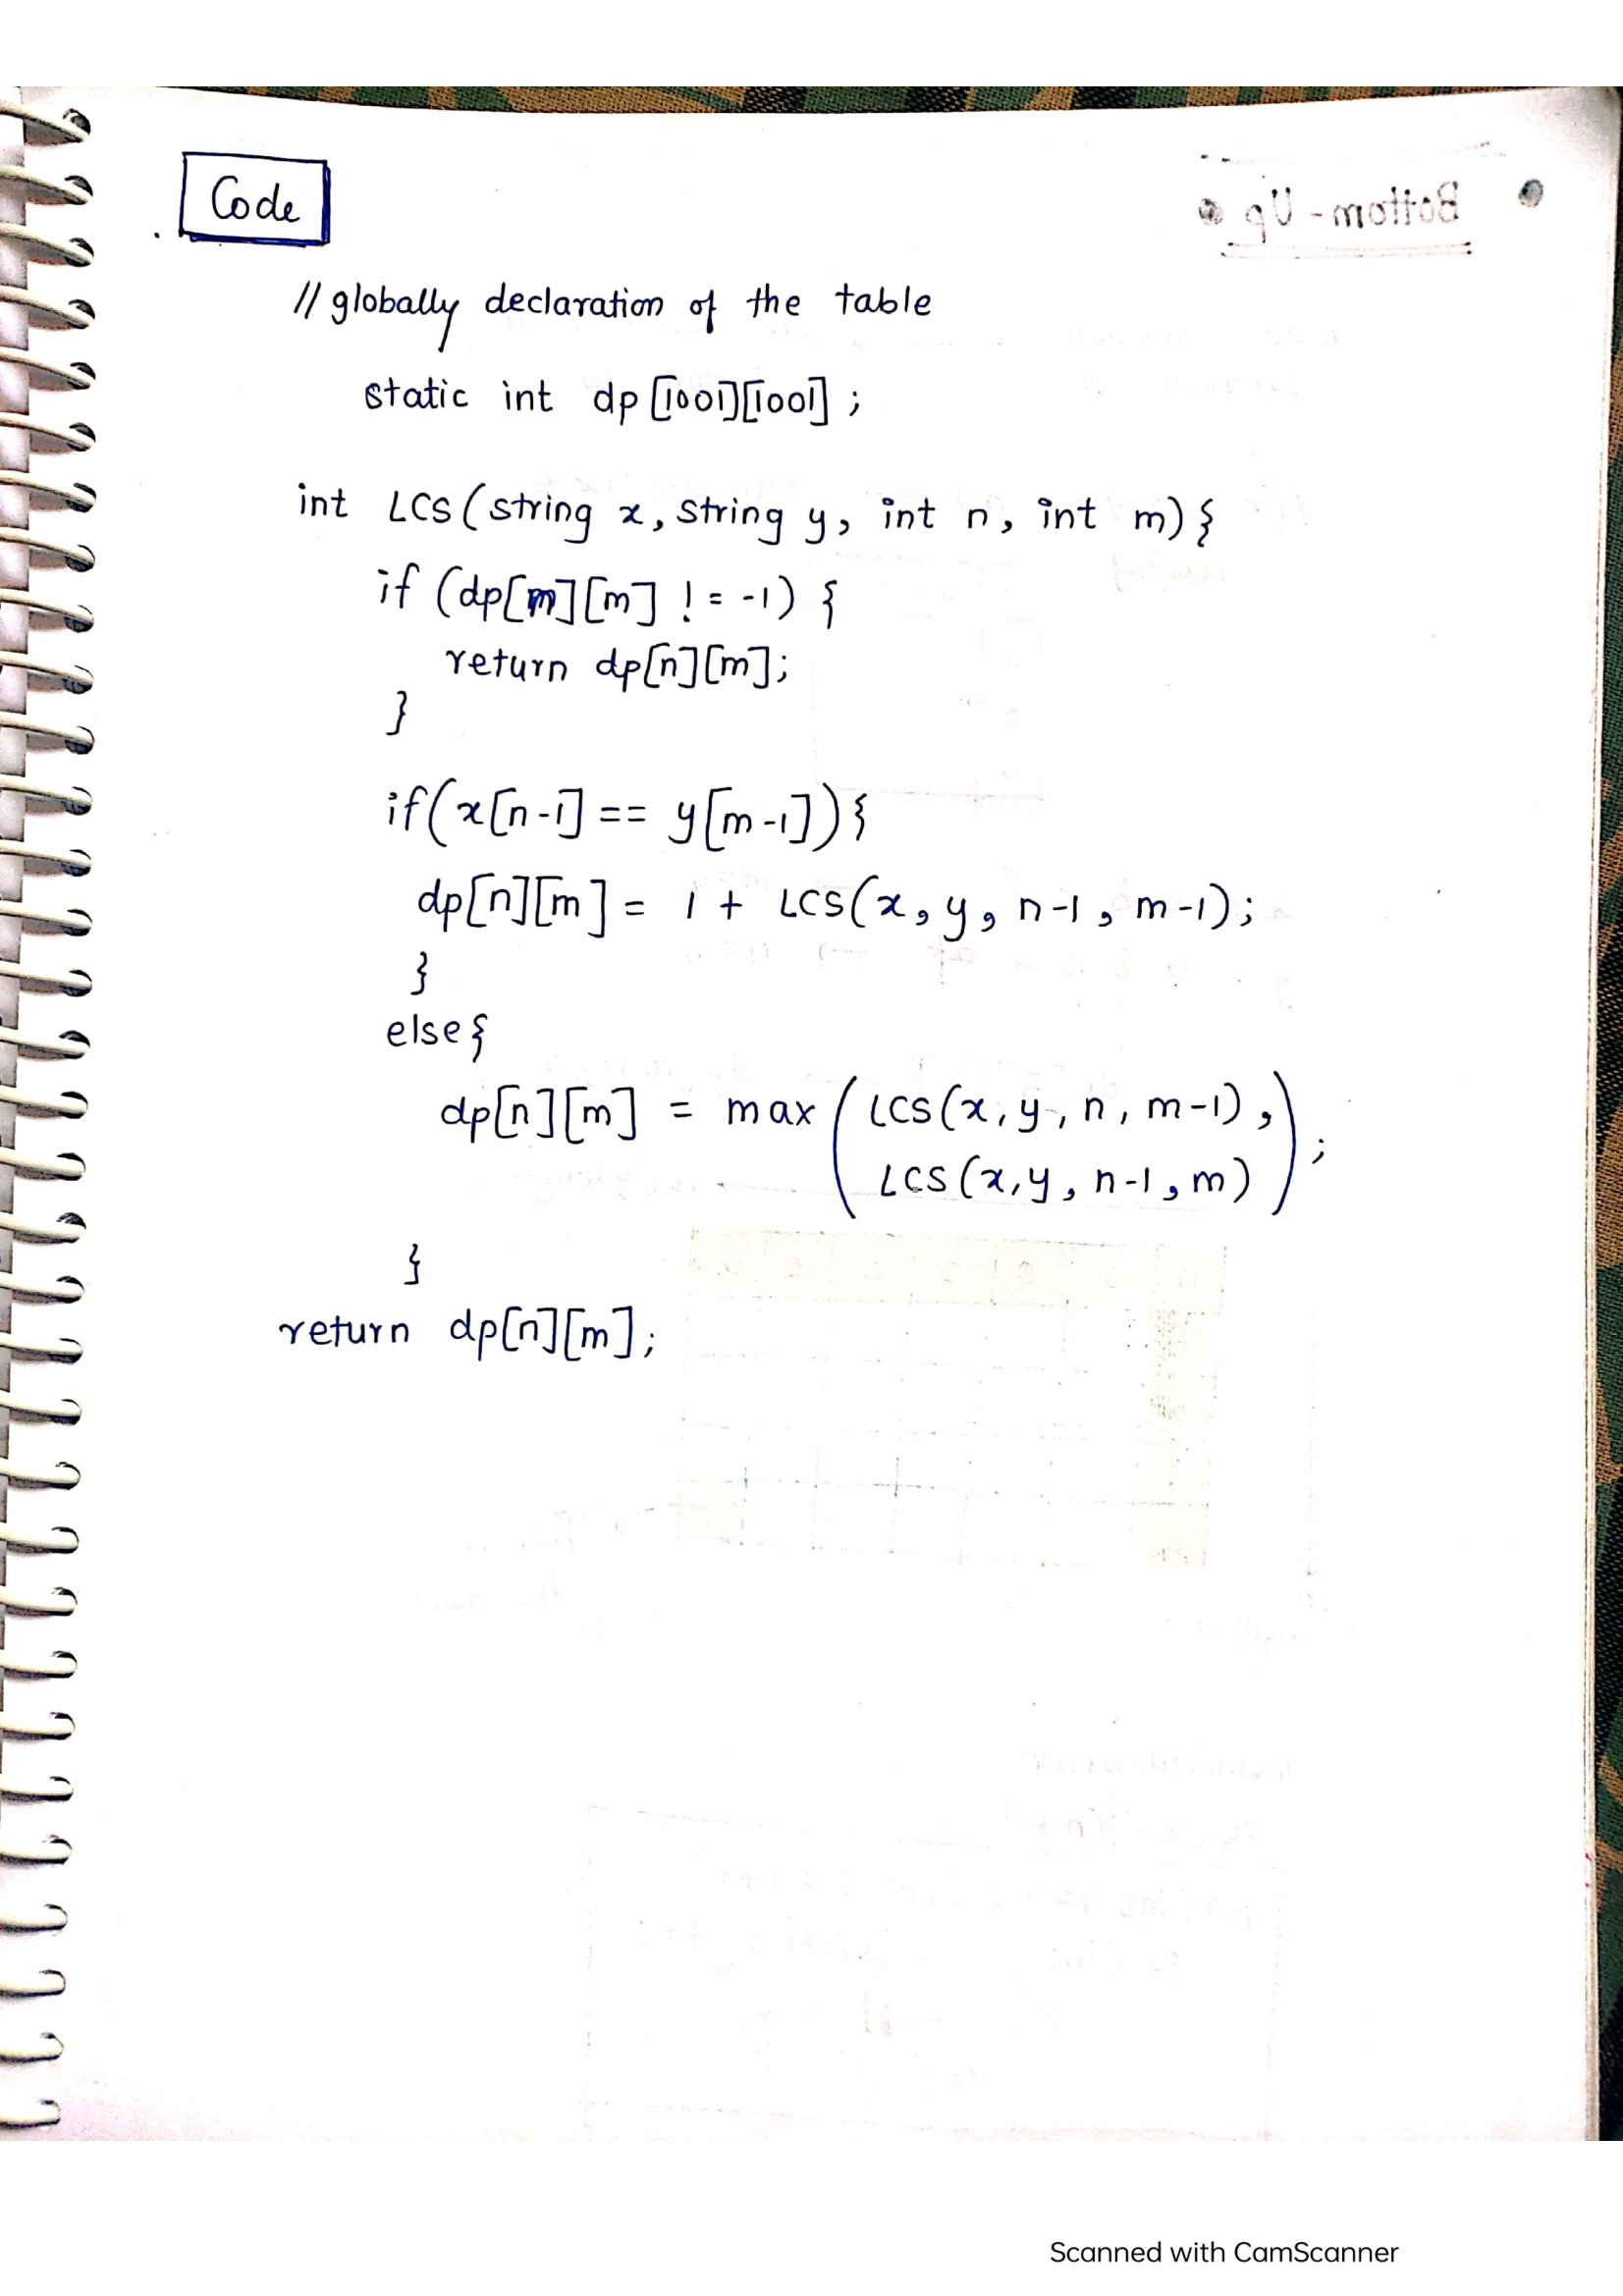 Code
// globally declaration of the table
static int dp[1001][1001];
int LCS(string x, string y, int n, int m){
if (dp[m][m] != -1) {
return dp[n][m];
}
if(x[n-1] == y[m-1]){
dp[n][m] = 1 + LCS(x, y, n-1, m-1);
}
else{
dp[n][m] = max(LCS(x, y, n, m-1),
LCS(x, y, n-1, m));
}
return dp[n][m];
Scanned with CamScanner